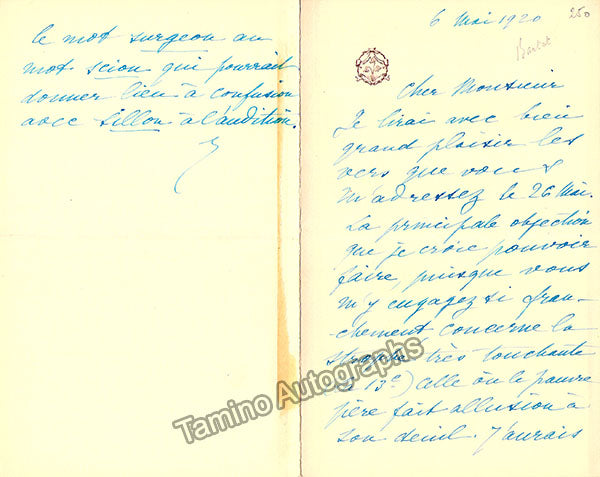 6 Mai 1920
250
Cher Monsieur
Je lirai avec bien
grand plaisir les
vers que vous
m'adressez le 26 Mai.
La principale objection
que je crois pouvoir
faire, puisque vous
m'y engagez si fran-
chement concerne la
strophe très touchante
(la 13e) celle où le pauvre
père fait allusion à
son deuil. J'aurais
le mot surgeon au
mot scion qui pourrait
donner lieu à confusion
avec sillon à l'audition.
Tamino Autographs